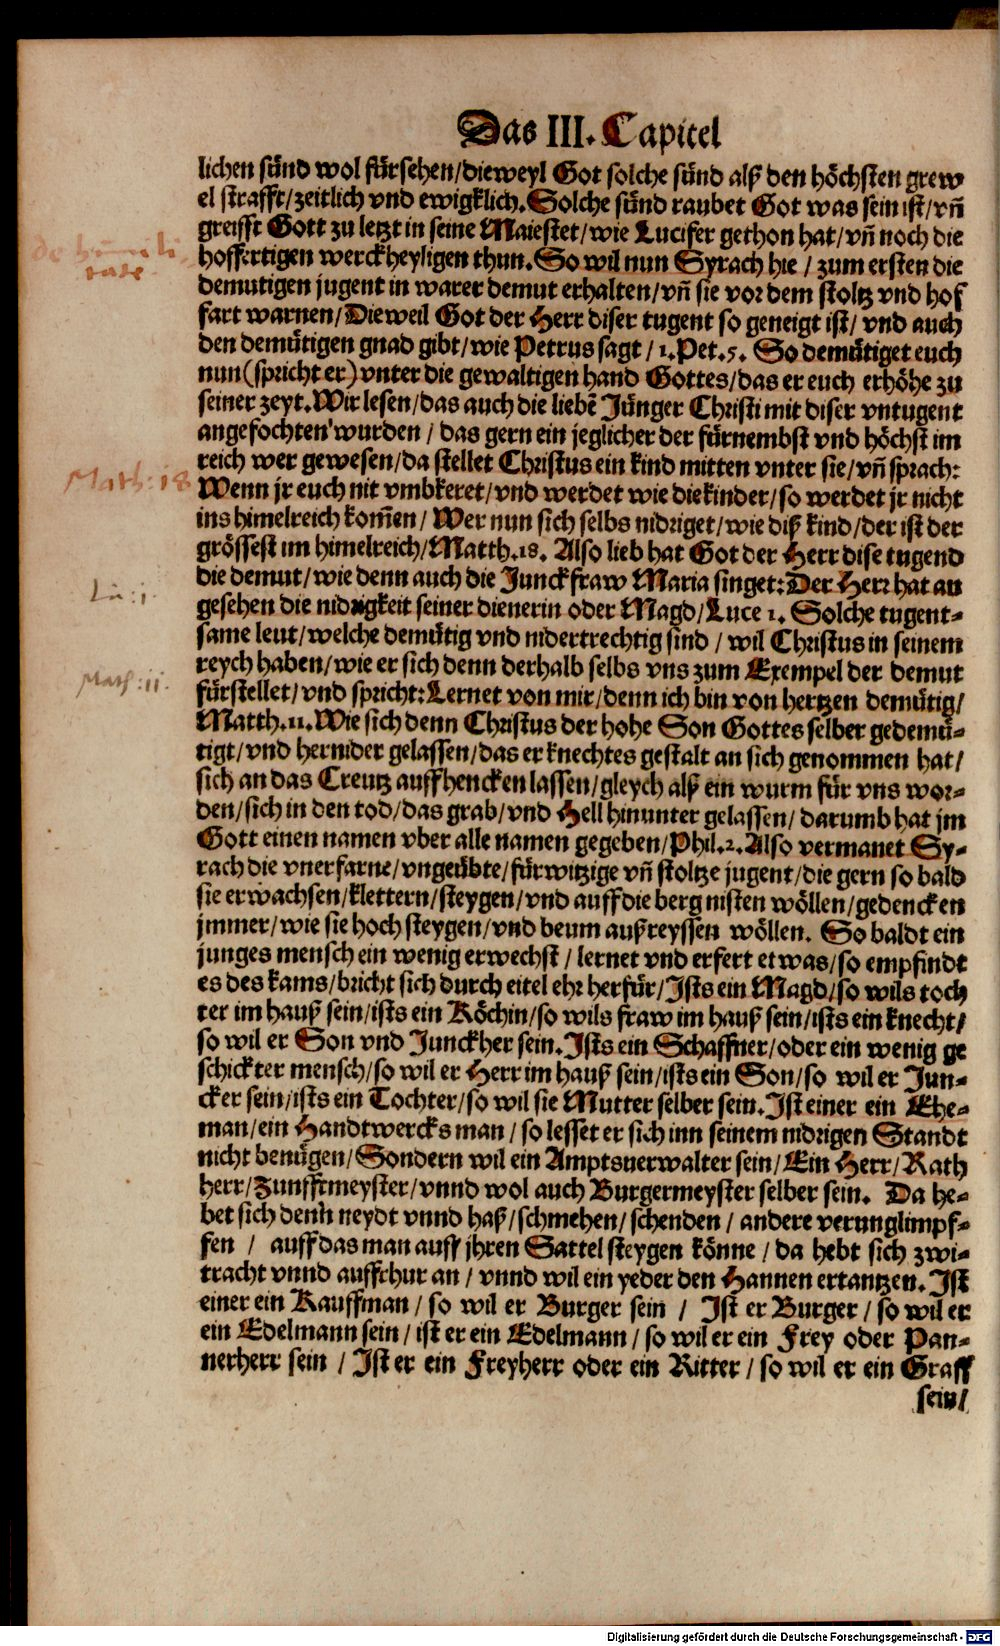 Das III. Capitel
lichen sünd wol fürsehen/dieweyl Got solche sünd alß den höchsten grew
el strafft/zeitlich vnd ewigklich. Solche sünd raubet Got was sein ist/vñ
greifft Gott zu letzt in seine Maiestet/wie Lucifer gethon hat/vñ noch die
de humili
hoffertigen werckheyligen thun. So wil nun Syrach hie / zum ersten die
tate
demutigen jugent in warer demut erhalten/vñ sie vor dem stoltz vnd hof
fart warnen/Dieweil Got der Herr diser tugent so geneigt ist/ vnd auch
den demütigen gnad gibt/wie Petrus sagt / 1. Pet. 5. So demütiget euch
nun (spricht er) vnter die gewaltigen hand Gottes/das er euch erhöhe zu
seiner zeyt. Wir lesen/das auch die liebē Jünger Christi mit diser vntugent
angefochten wurden / das gern ein jeglicher der fürnembst vnd höchst im
reich wer gewesen/da stellet Christus ein kind mitten vnter sie/vñ sprach:
Math: 18
Wenn jr euch nit vmbkeret/vnd werdet wie die kinder/so werdet jr nicht
ins himelreich kom̃en/ Wer nun sich selbs nidriget/wie diß kind/der ist der
grössest im himelreich/Matth. 18. Also lieb hat Got der Herr dise tugend
die demut/wie denn auch die Junckfraw Maria singet: Der Herr hat an
Lu: 1.
gesehen die nidrigkeit seiner dienerin oder Magd/Luce 1. Solche tugent-
same leut/welche demütig vnd nidertrechtig sind / wil Christus in seinem
reych haben/wie er sich denn derhalb selbs vns zum Exempel der demut
Math: 11.
fürstellet/vnd spricht: Lernet von mir/denn ich bin von hertzen demütig/
Matth. 11. Wie sich denn Christus der hohe Son Gottes selber gedemü-
tigt/vnd hernider gelassen/das er knechtes gestalt an sich genommen hat/
sich an das Creutz auffhencken lassen/gleych alß ein wurm für vns wor-
den/sich in den tod/das grab/vnd Hell hinunter gelassen/ darumb hat jm
Gott einen namen vber alle namen gegeben/Phil. 2. Also vermanet Sy-
rach die vnerfarne/vngeübte/fürwitzige vñ stoltze jugent/die gern so bald
sie erwachsen/klettern/steygen/vnd auff die berg nisten wöllen/gedencken
jmmer/wie sie hoch steygen/vnd beum außreyssen wöllen. So baldt ein
junges mensch ein wenig erwechst / lernet vnd erfert etwas/so empfindt
es des kams/bricht sich durch eitel ehr herfür/Ists ein Magd/so wils toch
ter im hauß sein/ists ein Köchin/so wils fraw im hauß sein/ists ein knecht/
so wil er Son vnd Junckher sein. Ists ein Schaffner/oder ein wenig ge
schickter mensch/so wil er Herr im hauß sein/ists ein Son/so wil er Jun-
cker sein/ists ein Tochter/so wil sie Mutter selber sein. Ist einer ein Ehe-
man/ein Handtwercks man / so lesset er sich inn seinem nidrigen Standt
nicht benügen/Sondern wil ein Amptsuerwalter sein/Ein Herr/Rath
herr/Zunfftmeyster/vnnd wol auch Burgermeyster selber sein. Da he-
bet sich denn neydt vnnd haß/schmehen/schenden / andere verunglimpf-
fen / auff das man auff jhren Sattel steygen könne / da hebt sich zwi-
tracht vnnd auffrhur an / vnnd wil ein yeder den Hannen ertantzen. Ist
einer ein Kauffman / so wil er Burger sein / Ist er Burger / so wil er
ein Edelmann sein / ist er ein Edelmann / so wil er ein Frey oder Pan-
nerherr sein / Ist er ein Freyherr oder ein Ritter / so wil er ein Graff
sein/
Digitalisierung gefördert durch die Deutsche Forschungsgemeinschaft - DFG